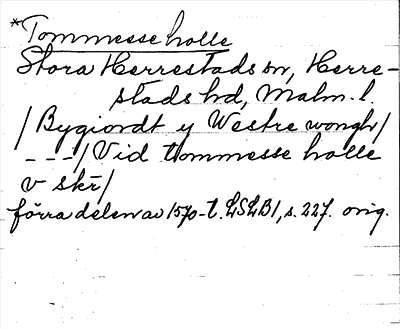 *Tommesse holle
Stora Herrestads sn, Herre-
stads hd, Malm. l.
/ Bygiordt y Westre wongh /
---/ Vid tommesse holle
v skr/
förra delen av 1570-t. LSLB1, s. 227. orig.